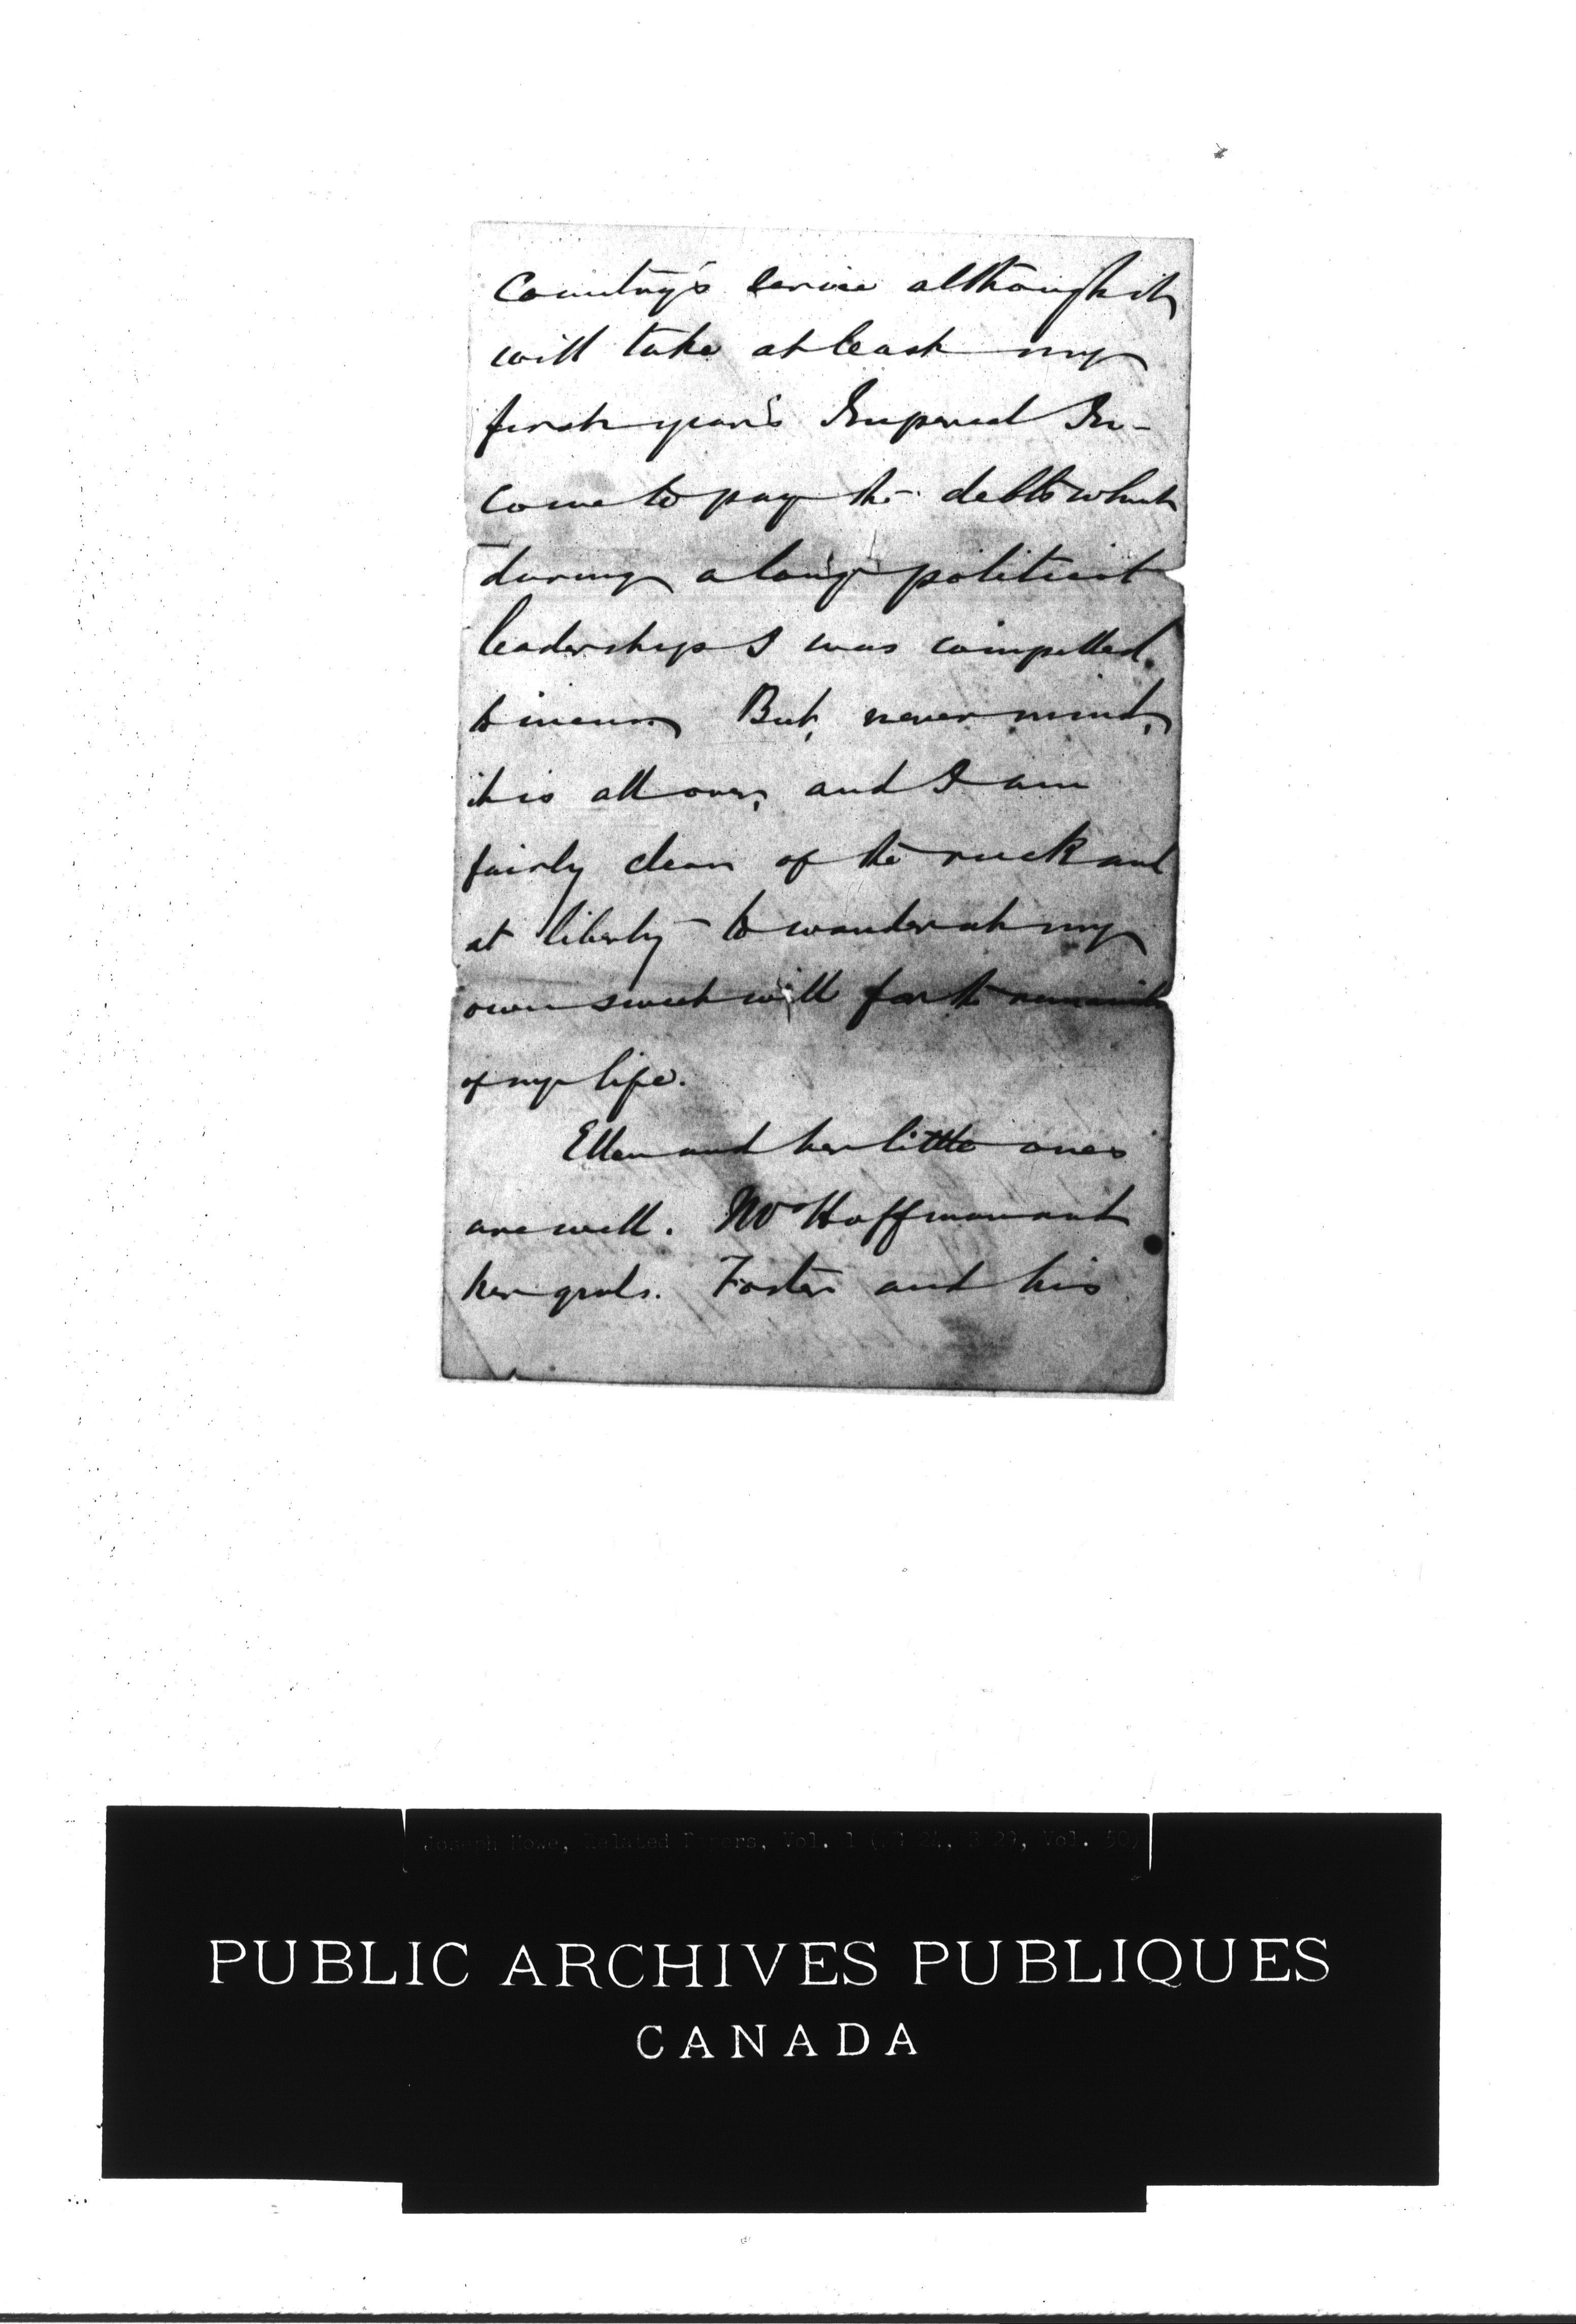 Country's service although it
will take at least my
first year's Imperial In-
come to pay the debts which
during a long political
leadership I was compelled
to incur. But, never mind,
it is all over, and I am
fairly clear of the ruck and
at liberty to wander at my
own sweet will for the remainder
of my life.
Ellen and her little ones
are well. Hoffman and
her girls. Foster and his
Joseph Howe, Related Papers, Vol. 1 (MG 24, B 29, Vol. 50)
PUBLIC ARCHIVES PUBLIQUES
CANADA